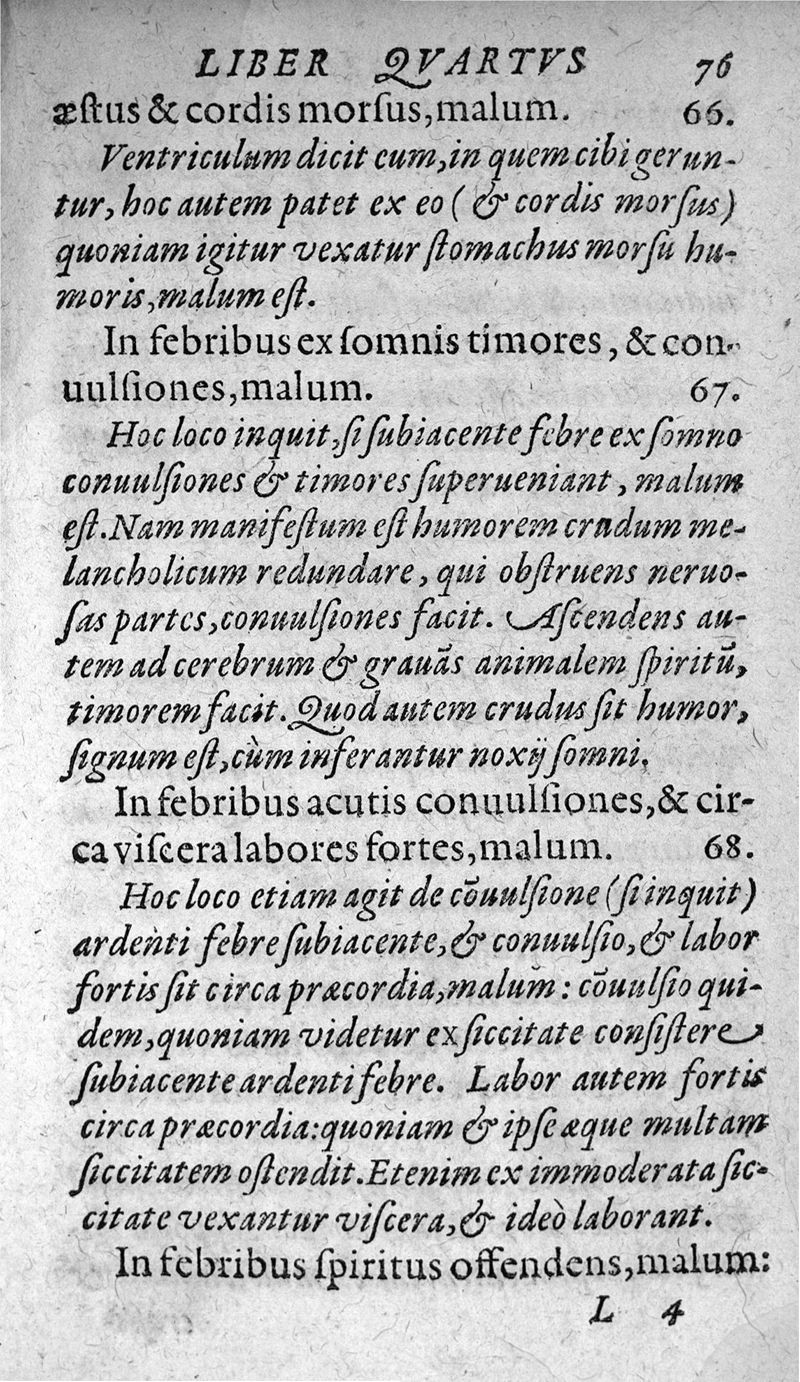 LIBER QVARTVS 76
æſtus & cordis morſus, malum. 66.
Ventriculum dicit eum, in quem cibi gerun-
tur, hoc autem patet ex eo (& cordis morſus)
quoniam igitur vexatur ſtomachus morſu hu-
moris, malum eſt.
In febribus ex ſomnis timores, & con-
uulſiones, malum. 67.
Hoc loco inquit, ſi ſubiacente febre ex ſomno
conuulſiones & timores ſuperueniant, malum
eſt. Nam manifeſtum eſt humorem crudum me-
lancholicum redundare, qui obſtruens neruo-
ſas partes, conuulſiones facit. Aſcendens au-
tem ad cerebrum & grauãs animalem ſpiritũ,
timorem facit. Quod autem crudus ſit humor,
ſignum eſt, cùm inferantur noxij ſomni.
In febribus acutis conuulſiones, & cir-
ca viſcera labores fortes, malum. 68.
Hoc loco etiam agit de cõuulſione (ſi inquit)
ardenti febre ſubiacente, & conuulſio, & labor
fortis ſit circa præcordia, malum: cõuulſio qui-
dem, quoniam videtur ex ſiccitate conſiſtere
ſubiacente ardenti febre. Labor autem fortis
circa præcordia: quoniam & ipſe æque multam
ſiccitatem oſtendit. Etenim ex immoderata ſic-
citate vexantur viſcera, & ideò laborant.
In febribus ſpiritus offendens, malum:
L 4